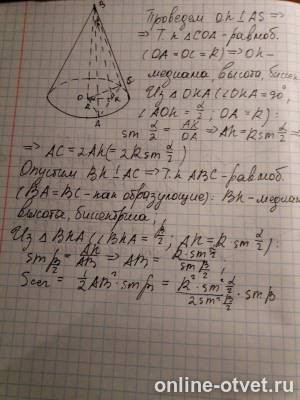 Проведем OH ⊥ AS ⇒
⇒ Т.к △COA - равноб.
(OA = OC = R) ⇒ OH -
медиана, высота, бисек
Из △OHA (∠OHA = 90°,
∠AOH = α/2, OA = R):
sin α/2 = AH/OA ⇒ AH = R sin α/2 ⇒
⇒ AC = 2AH (= 2R sin α/2)
Опустим BH ⊥ AC ⇒ Т.к ABC - равноб.
(BA = BC - как образующие): BH - медиан
высота, биссектриса,
Из △BHA (∠BHA = β/2; AH = R · sin α/2):
sin β/2 = AH/AB ⇒ AB = R · sin α/2 / sin β/2 ;
Sсеч = 1/2 AB² · sin β = R² · sin² α/2 / 2 sin² β/2 · sin β
online-otvet.ru